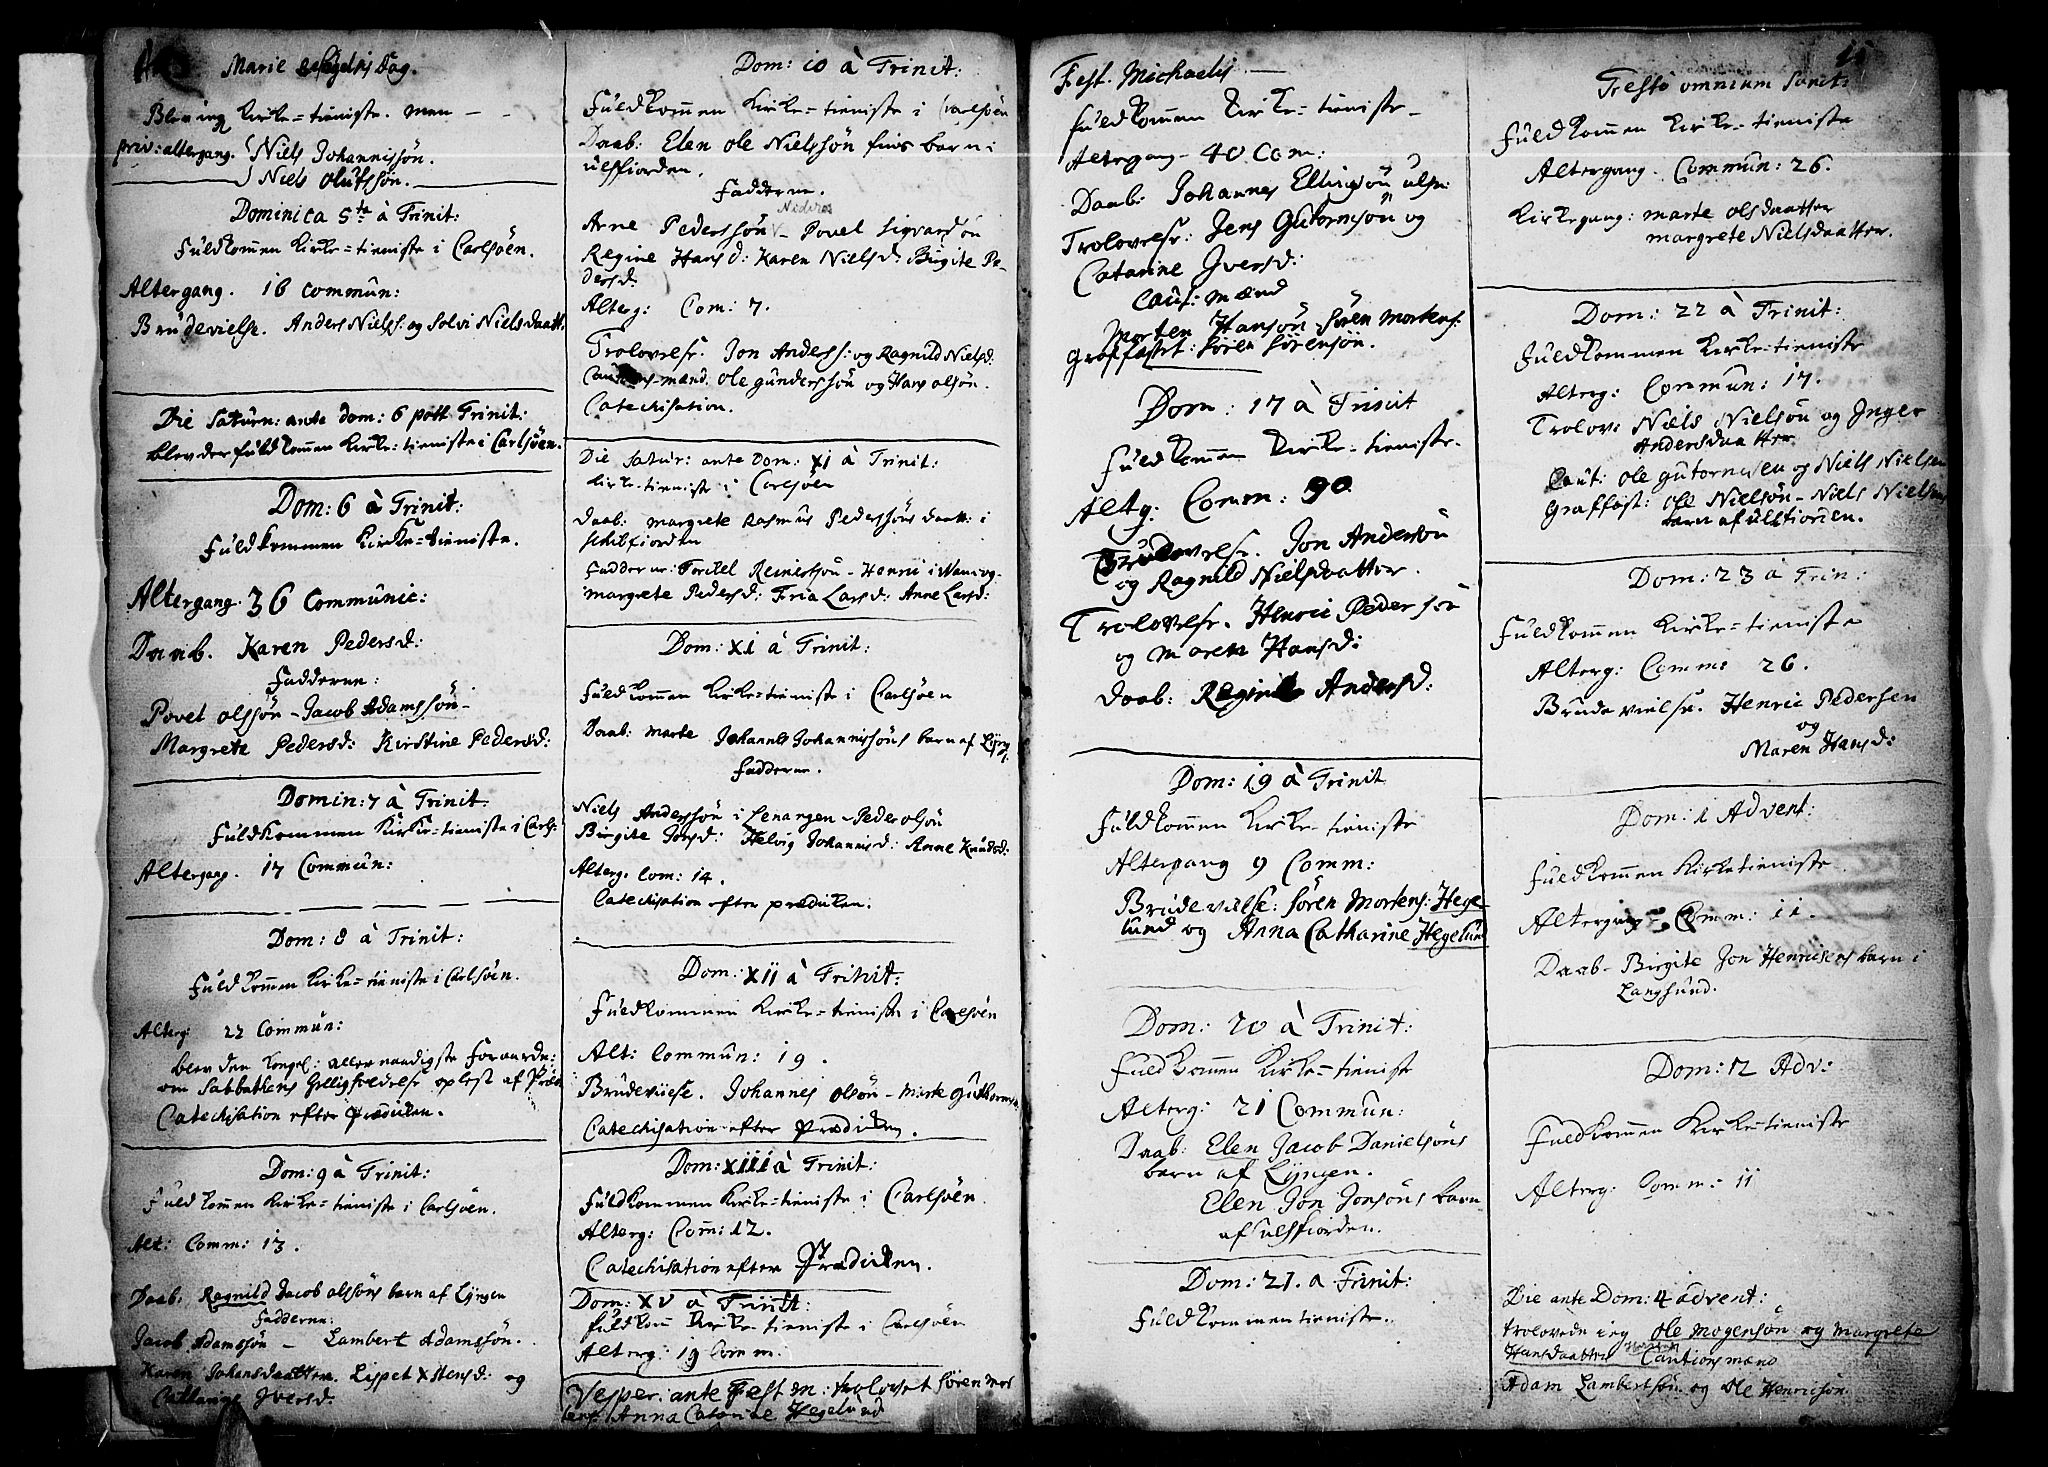 Marie Dag.
Blev ing kirke-tieniste. men
priv: altergang. Niels Johannissøn.
Niels Olufssøn.
Dominica 5te à Trinit:
Fuldkommen kirke-tieniste i Carlsøen.
Altergang. 16 commun:
Brudevielse. Anders Nielss: og Solvi Nielsdaatt:
Die Saturn: ante Dom: 6 post Trinit:
blev der fuldkommen kirke-tieniste i Carlsøen.
Dom: 6 à Trinit:
Fuldkommen kirke-tieniste.
Altergang. 36 Communic:
Daab. Karen Pedersd:
Fadderne:
Povel Olssøn - Jacob Adamssøn -
Margrete Pedersd: Kirstine Pedersd:
Domin: 7 à Trinit:
Fuldkommen Kirke-tieniste i Carls:
Altergang. 17 Commun:
Dom: 8 à Trinit:
Fuldkommen kirke-tieniste i Carlsøen.
Alterg: 22 Commun:
blev den Kongel: allernaadigste Foraardn:
om Sabbathens Helligholdelse oplest af Præd
Catechisation efter Prædiken.
Dom: 9 à Trinit:
Fuldkommen kirke-tieniste i Carlsøen.
Alt: Comm: 13.
Daab. Ragnild Jacob Olssøns barn af Lyngen
Fadderne:
Jacob Adamssøn - Lambert Adamssøn.
Karen Johansdaatter. Lispet Stensd: og
Catharine Iversd:
Dom: 10 à Trinit:
Fuldkommen kirke-tieniste i Carlsøen
Daab: Elen Ole Nielssøn fins barn i
Ulsfiorden.
Fadderne.
Arne Pederssøn - Povel Sigvarssøn
Regine Hansd: Karen Nielsd: Birgite Pe-
dersd.
Alterg: Com: 7.
Trolovelse. Jon Anderss: og Ragnild Nielsd.
mænd. Ole Gunderssøn og Hans Olsøn.
Catechisation.
Die Satur: ante Dom: XI à Trinit:
kirke-tieniste i Carlsøen
Daab: Margrete Rasmus Pederssøns daatt: i
Skibfiorden
Fadderne: Torkel Reinertsøn - Henric i og
Margrete Pedersd: Larsd: Anne Larsd:
Dom: XI à Trinit:
Fuldkommen kirke-tieniste i Carlsøen
Daab: Marte Johannes Johannissøns barn af Lyng
Fadderne.
Niels Anderssøn i Lenangen - Peder Olsøn
Birgite Jonsd: Helvig Johannisd: Anne Knudsd:
Alterg. Com: 14.
Catechisation efter prædiken.
Dom: XII à Trinit:
Fuldkommen kirke-tieniste i Carlsøen
Alt: Commun: 19.
Brudevielse. Johannes Olsøn - Marte Guttorms
Catechisation efter Prædiken.
Dom: XIII à Trinit:
Fuldkommen kirke-tieniste i Carlsøen.
Alterg: Com: 12.
Catechisation efter Prædiken.
Dom: XV à Trinit:
fuldkom kirke-tieniste i Carlsøen
Alterg: 19 Comm.
Vesper: ante Fest M: trolovet Søren Mor
tens: Anna Catarine Hegelund
Fest. Michaelis
fuldkommen kirke-tieniste -
Altergang - 40 Com:
Daab: Johannes Ellingsøn Ulsf:
Trolovelse: Jens Guttormsøn og
Catarine Iversd:
Caut: mænd
Morten Hansøn. Søren Mortens:
Graffæst: Søren Sørensøn.
Dom: 17 à Trinit
Fuldkommen kirke-tieniste.
Altg: Comm: 90
Brudevielse. Jon Andersøn
og Ragnild Nielsdaatter.
Trolovelse. Henric Pedersøn
og Maren Hansd:
Daab: Andersd:
Dom: 19 à Trinit
Fuldkommen Kirke-tieniste
Altergang 9 Comm:
Brudevielse: Søren Mortens: Hege-
lund og Anna Catharine Hegelund
Dom: 20 à Trinit:
Fuldkommen Kirke-tieniste
Alterg: 21 Commun:
Daab: Elen Jacob Danielsøns
barn af Lyngen.
Elen Jon Jonsøns barn
af Ulsfiorden.
Dom: 21. a Trinit:
Fuldkommen tieniste.
Festo omnium Sanct:
Fuldkommen kirke-tieniste
Altergang. Commun: 26.
Kirkegang: Marte Olsdaatter
Margrete Nielsdaatter.
Dom: 22 à Trinit:
Fuldkommen kirke-tieniste
Alterg: Commun: 17.
Trolov: Niels Nielsøn og Inger
Andersdaatter
Caut: Ole Gutormsen og Niels Nielsen
Graffæst: Ole Nielsøn - Niels Nielsens
barn af Ulsfiorden.
Dom: 23 à Trin:
Fuldkommen kirke-tieniste
Alterg: Comm: 26.
Brudevielse. Henric Pedersen
og
Maren Hansd:
Dom: 1 Advent:
Fuldkommen Kirketieniste
Altergang - Comm: 11.
Daab - Birgite Jon Henricsens barn i
Langsund.
Dom: 2 Adv:
Fuldkommen Kirke-tieniste
Alterg: Comm: 11
Die ante Dom: 4 advent:
trolovede ieg Ole Mogensøn og Margrete
Hansdaatter Cautions mænd
Adam Lambertsøn og Ole Henricsøn.